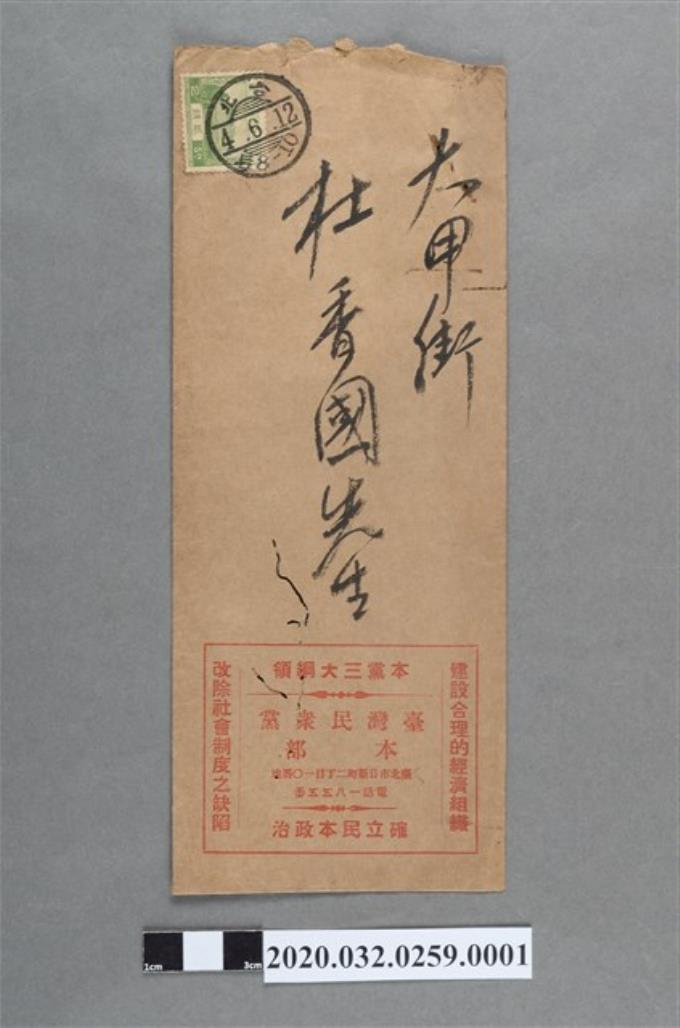 大甲街
杜香國先生
北
4.6.12
8-10
建設合理的經濟組織
本黨三大綱領
臺灣民衆黨
本部
臺北市日新町二丁目一〇番地
電話一八五五番
確立民本政治
改除社會制度之缺陷
1cm
3cm
2020.032.0259.0001